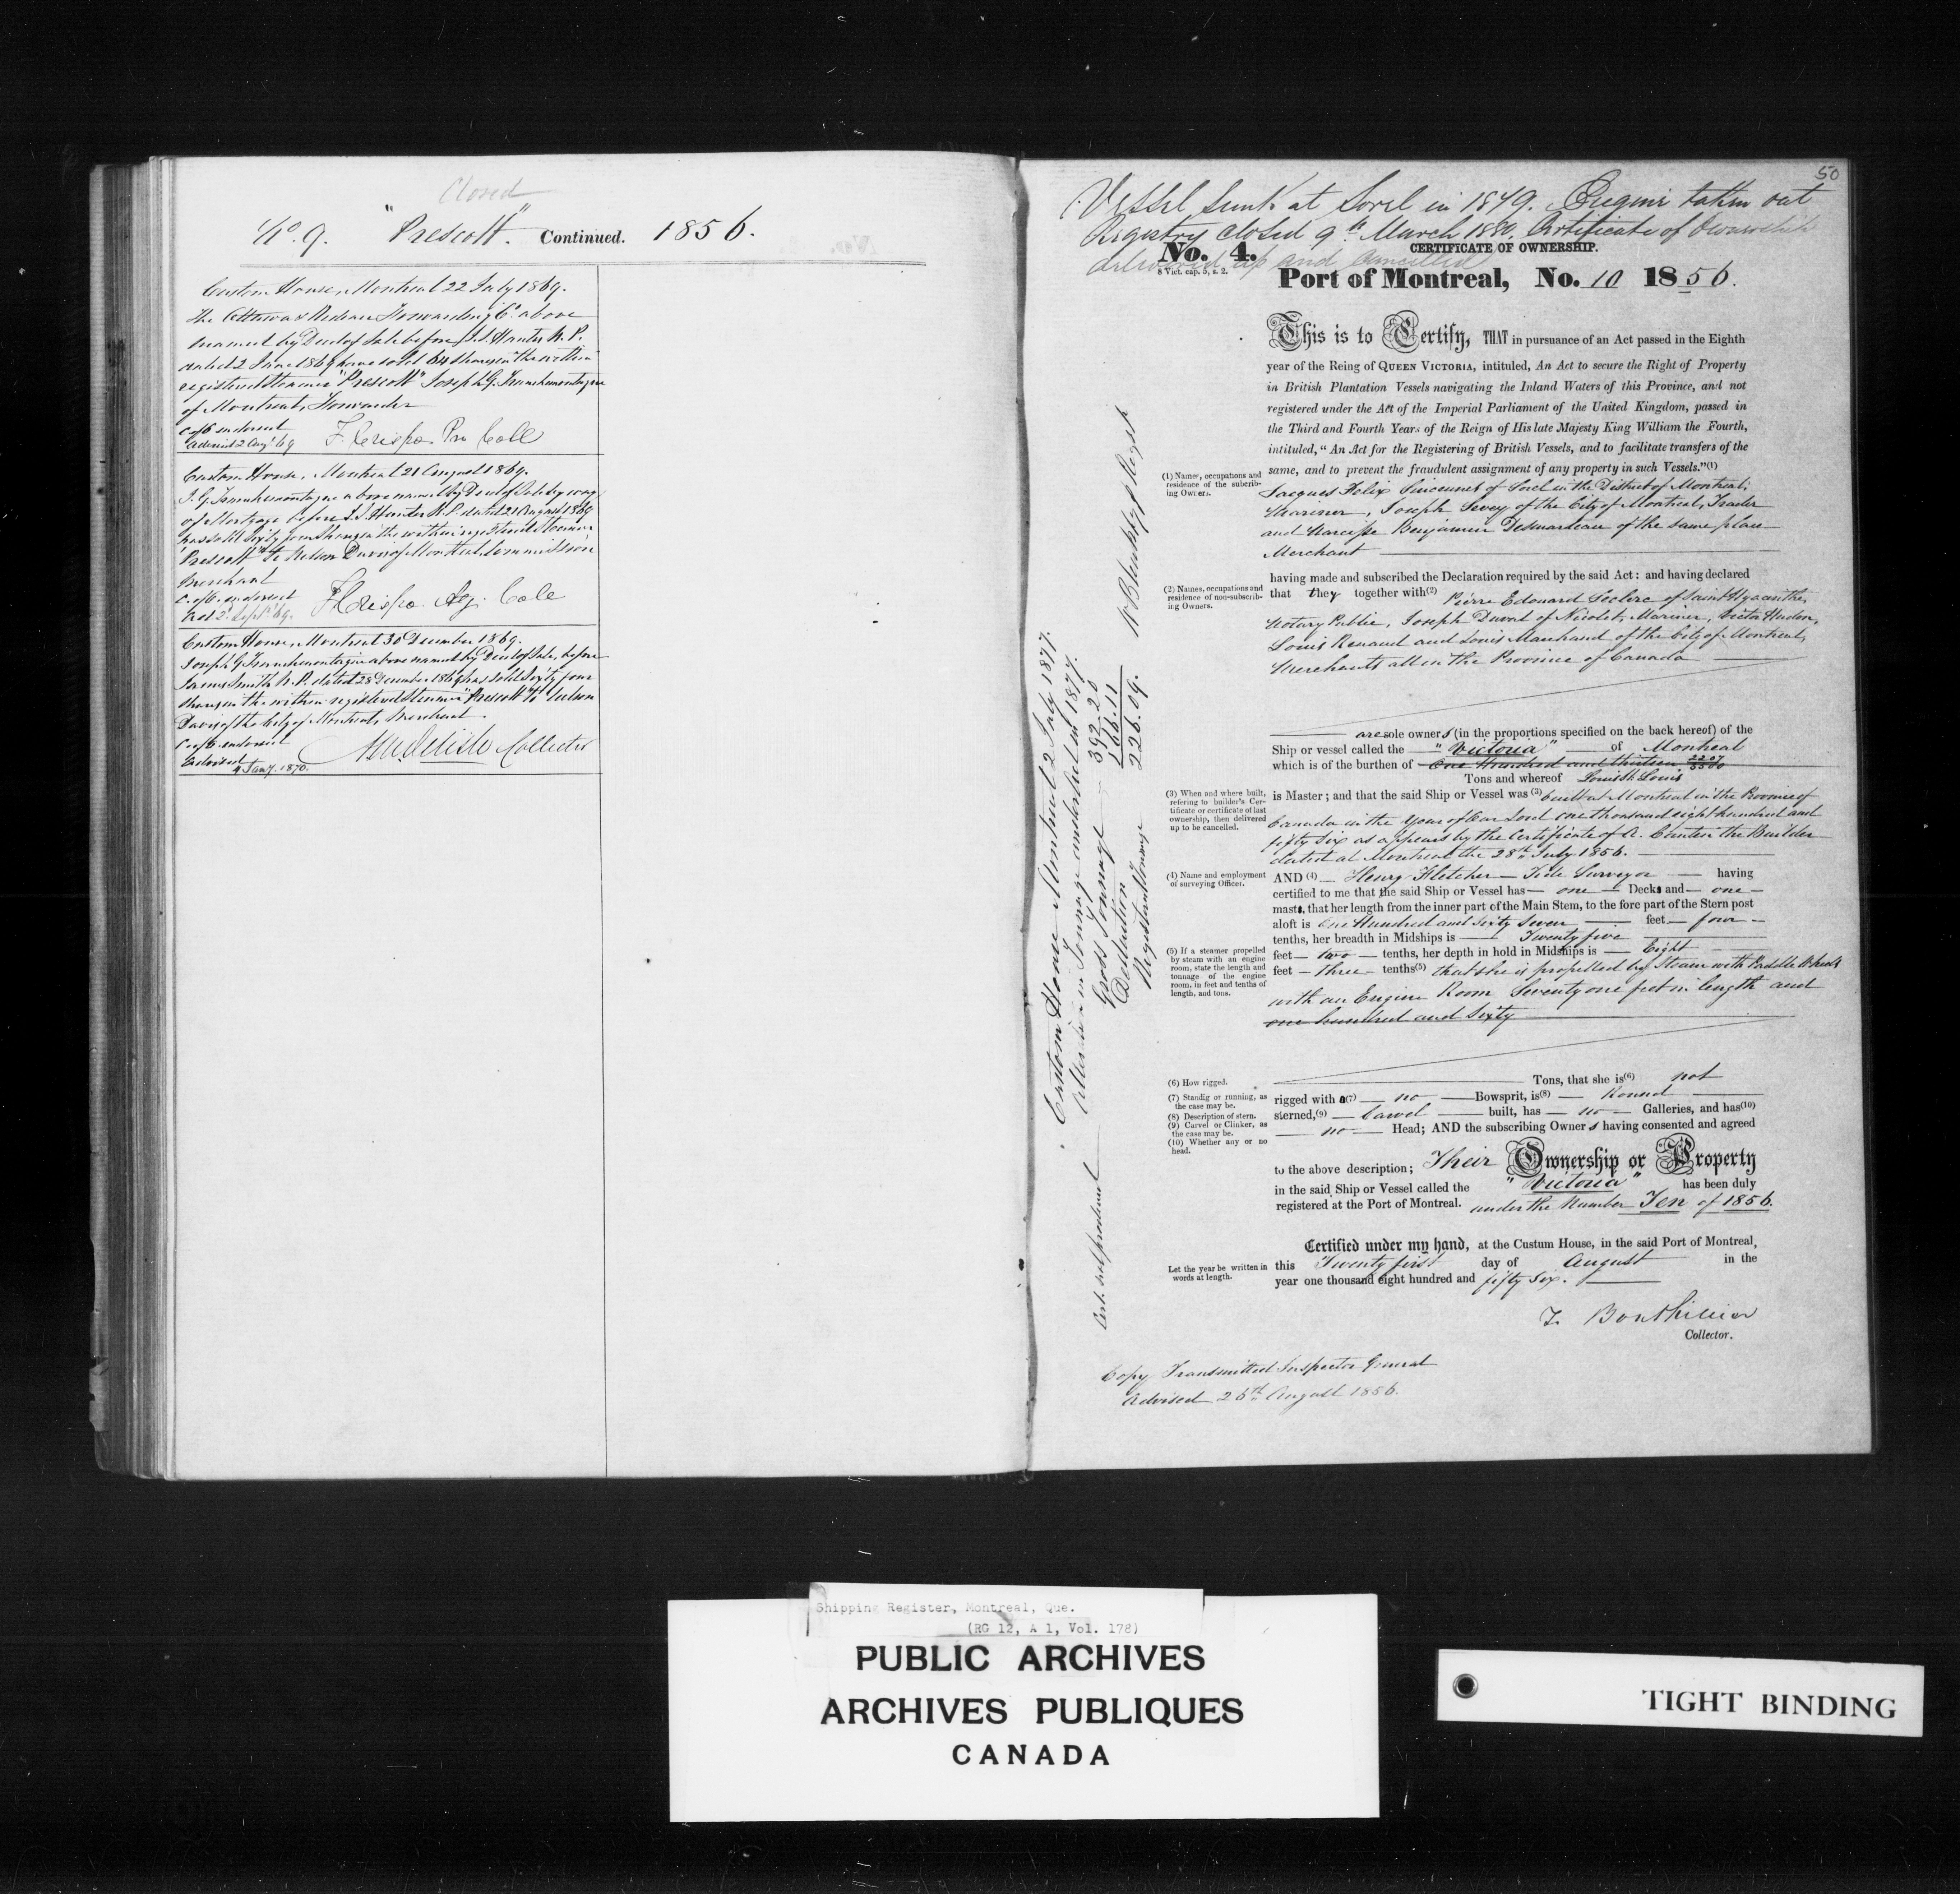 Closed
No. 9. "Prescott". Continued. 1856.
Custom House, Montreal 22 July 1869.
The Ottawa & Rideau Forwarding Co. above
named by Deed of Sale before J.S. Hunter N.P.
dated 2 June 1869 have sold 64 shares in the within
registered Steamer "Prescott" Joseph G.
of Montreal, Forwarder
C of O endorsed
Advised 2 Augt. 69 F. Crispo Pro Coll
Custom House, Montreal 21 August 1869.
J. G. above named by Deed of Sale by way
of Mortgage before J.S. Hunter N.P. dated 21 August 1869
has sold Sixty four Shares in the within registered Steamer
"Prescott" To Nelson Davis of Montreal, Commission
Merchant
C. of O. endorsed
Ad 2 Septr. 69. F Crispo Ag. Cole
Custom House, Montreal 30 December 1869.
Joseph G above named by Deed of Sale, before
James Smith N.P. dated 28 December 1869 has sold Sixty four
Shares in the within registered Steamer "Prescott" to Nelson
Davis of the City of Montreal, Merchant.
C of O. endorsed
Advised
4 Jany. 1870. Collector
50
Vessel sunk at Sorel in 1879. Engine taken out
Registry closed 9th March 1880. Certificate of Ownership
delivered up and Cancelled
No. 4. CERTIFICATE OF OWNERSHIP.
8 Vict. cap. 5, s. 2.
Port of Montreal, No. 10 1856.
This is to Certify, THAT in pursuance of an Act passed in the Eighth
year of the Reing of QUEEN VICTORIA, intituled, An Act to secure the Right of Property
in British Plantation Vessels navigating the Inland Waters of this Province, and not
registered under the Act of the Imperial Parliament of the United Kingdom, passed in
the Third and Fourth Years of the Reign of His late Majesty King William the Fourth,
intituled, "An Act for the Registering of British Vessels, and to facilitate transfers of the
same, and to prevent the fraudulent assignment of any property in such Vessels."(1)
(1) Names, occupations and
residence of the subcrib-
ing Owners.
Jacques Felix Sincennes of Sorel in the District of Montreal,
Mariner, Joseph of the City of Montreal, Trader
and Narcisse Benjamin Desmarteau of the same place
Merchant
having made and subscribed the Declaration required by the said Act: and having declared
(2) Names, occupations and
residence of non-subscrib-
ing Owners.
that they together with(2) Pierre Edouard Leclerc of Saint Hyacinthe,
Notary Public, Joseph Duval of Nicolet, Mariner, Victor Hudon,
Louis Renaud and Louis Marchand of the City of Montreal,
Merchants all in the Province of Canada
are sole owners (in the proportions specified on the back hereof) of the
Ship or vessel called the "Victoria" of Montreal
which is of the burthen of One Hundred and thirteen
Tons and whereof Louis St. Louis
(3) When and where built,
refering to builder's Cer-
tificate or certificate of last
ownership, then delivered
up to be cancelled.
is Master; and that the said Ship or Vessel was (3) built at Montreal in the Province of
Canada in the year of Our Lord one thousand eight hundred and
fifty six as appears by the Certificate of A. Cantin the Builder
dated at Montreal the 28th July 1856.
(4) Name and employment
of surveying Officer.
AND (4) Henry Fletcher Tide Surveyor having
certified to me that the said Ship or Vessel has one Decks and one
masts, that her length from the inner part of the Main Stem, to the fore part of the Stern post
aloft is One Hundred and Sixty Seven feet four
tenths, her breadth in Midships is Twenty five
feet two tenths, her depth in hold in Midships is Eight
feet three tenths(5) that she is propelled by Steam with Paddle Wheels
(5) If a steamer propelled
by steam with an engine
room, state the length and
tonnage of the engine
room, in feet and tenths of
length, and tons.
with an Engine Room Seventy one feet in length and
one hundred and Sixty
Tons, that she is(6) not
(6) How rigged.
(7) Standig or running, as
the case may be.
(8) Description of stern.
(9) Carvel or Clinker, as
the case may be.
(10) Whether any or no
head.
rigged with a(7) no Bowsprit, is(8) Round
sterned,(9) Carvel built, has no Galleries, and has(10)
no Head; AND the subscribing Owners having consented and agreed
to the above description; Their Ownership or Property
in the said Ship or Vessel called the "Victoria" has been duly
registered at the Port of Montreal. under the Number Ten of 1856.
Certified under my hand, at the Custum House, in the said Port of Montreal,
Let the year be written in
words at length.
this Twenty first day of August in the
year one thousand eight hundred and fifty six.
T. Bouthillier
Collector.
Copy Transmitted Inspector General
Advised 26th August 1856.
Custom House Montreal 2 July 1877.
Alteration in Tonnage in 1877.
Gross Tonnage 392.20
Deduction 166.11
Register Tonnage 226.09.
Shipping Register, Montreal, Que.
(RG 12, A 1, Vol. 178)
PUBLIC ARCHIVES
ARCHIVES PUBLIQUES
CANADA
TIGHT BINDING